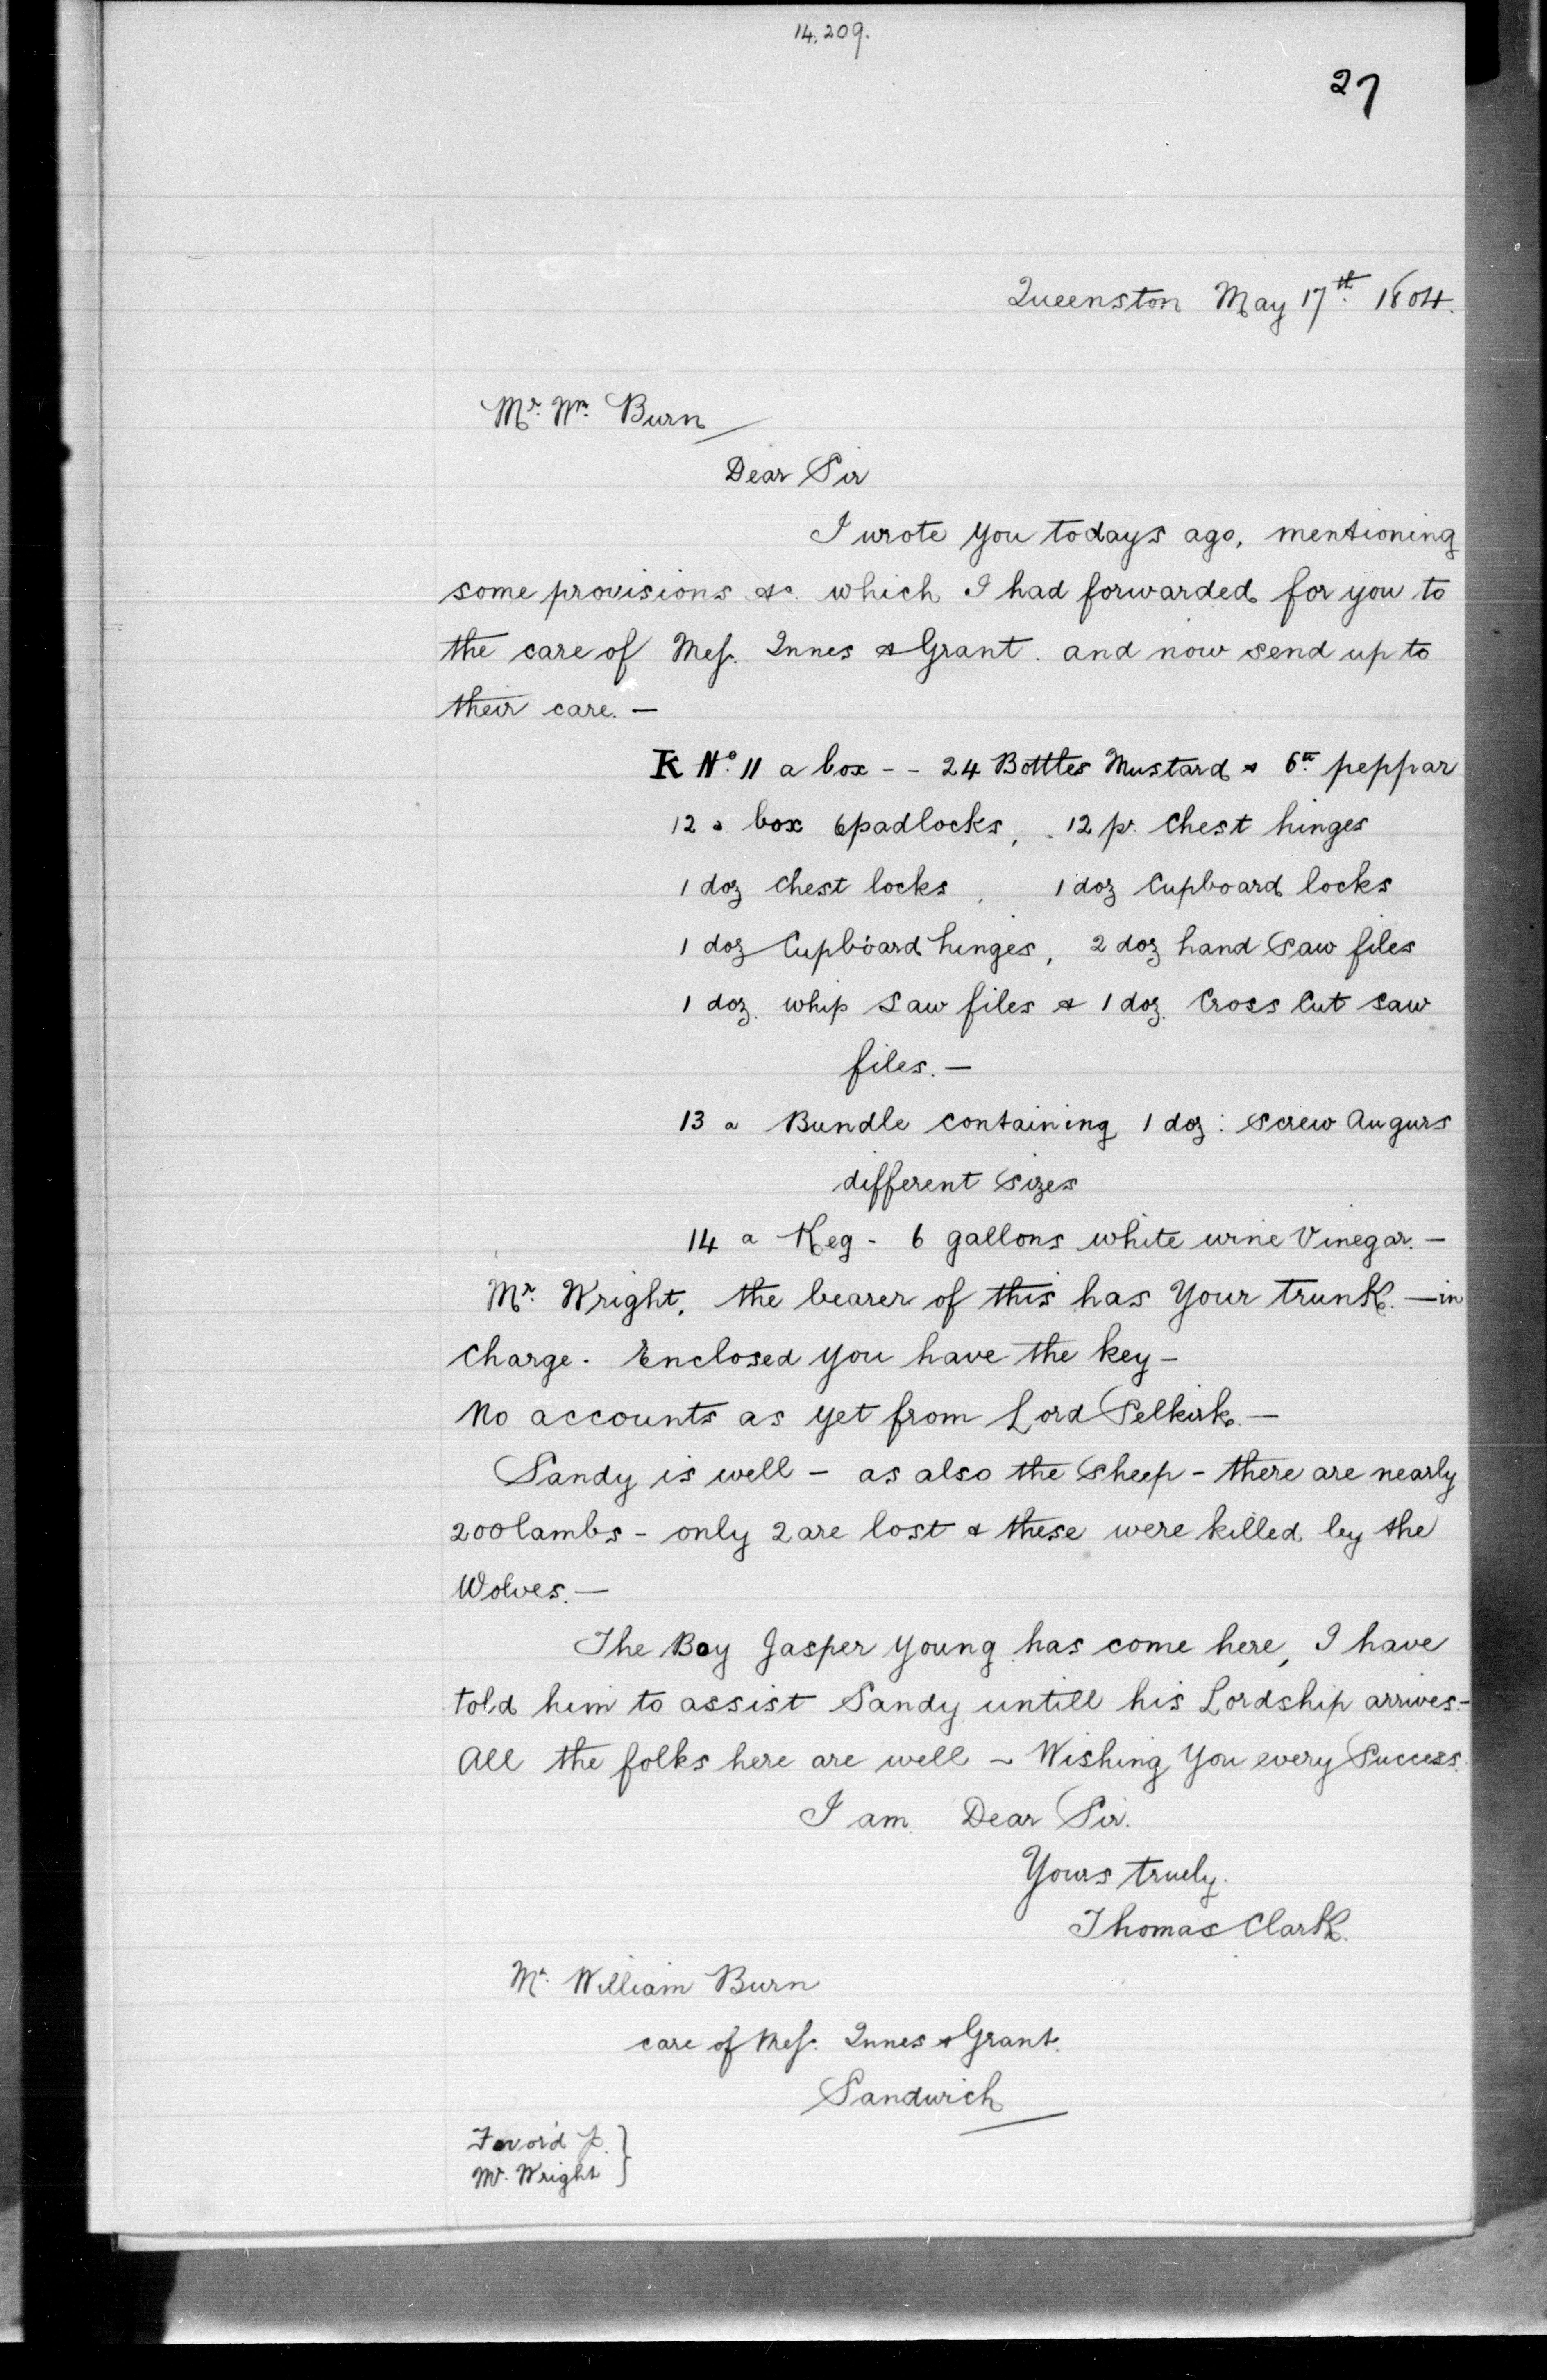 14,209.
27
Queenston May 17th. 1804.
Mr. Wm. Burn
Dear Sir
I wrote you todays ago, mentioning
some provisions &c. which I had forwarded for you to
the care of Messrs. Innes & Grant. and now send up to
their care. —
K No. 11 a box - - 24 Botttles Mustard & 6 peppar
12 a box 6 padlocks, 12 pr. Chest hinges
1 doz Chest locks, 1 doz Cupboard locks
1 doz Cupboard hinges, 2 doz hand Saw files
1 doz. whip Saw files & 1 doz. Cross Cut saw
files. —
13 a Bundle containing 1 doz: Screw Augurs
different Sizes
14 a Keg - 6 gallons white wine Vinegar. —
Mr. Wright, the bearer of this has your trunk. — in
Charge. Enclosed you have the key —
No accounts as yet from Lord Selkirk. —
Sandy is well — as also the Sheep — there are nearly
200 lambs — only 2 are lost & these were killed by the
Wolves. —
The Boy Jasper Young has come here, I have
told him to assist Sandy untill his Lordship arrives. —
All the folks here are well ~ Wishing You every Success.
I am Dear Sir.
Yours truely.
Thomas Clark.
Mr. William Burn
care of Messrs. Innes & Grant.
Sandwich
Favor'd p.
Mr. Wright }